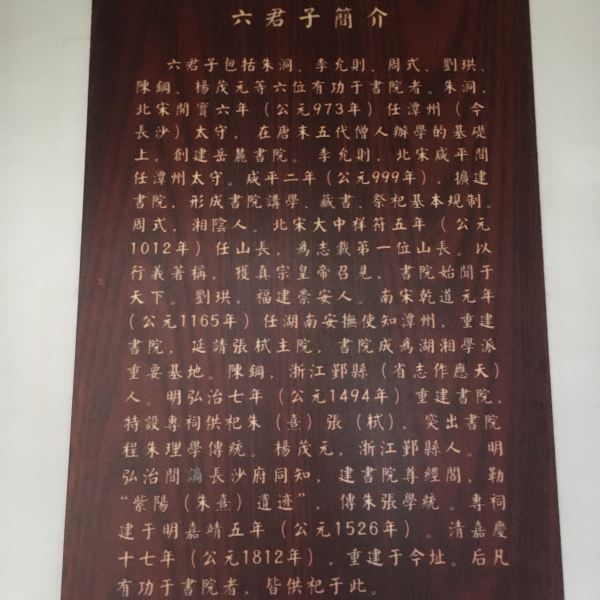 六君子簡介
六君子包括朱洞、李允則、周式、劉珙、
陳鋼、楊茂元等六位有功于書院者。朱洞，
北宋開寶六年（公元973年）任潭州（今
長沙）太守，在唐末五代僧人辦學的基礎
上，創建岳麓書院。李允則，北宋咸平間
任潭州太守。咸平二年（公元999年），擴建
書院，形成書院講學、藏書、祭祀基本規制。
周式，湘陰人。北宋大中祥符五年（公元
1012年）任山長，為志載第一位山長。以
行義著稱，獲真宗皇帝召見，書院始聞于
天下。劉珙，福建崇安人。南宋乾道元年
（公元1165年）任湖南安撫使知潭州，重建
書院，延請張栻主院，書院成為湖湘學派
重要基地。陳鋼，浙江鄞縣（省志作應天）
人。明弘治七年（公元1494年）重建書院，
特設專祠供祀朱（熹）張（栻），突出書院
程朱理學傳統。楊茂元，浙江鄞縣人。明
弘治間謫長沙府同知，建書院尊經閣，勒
“紫陽（朱熹）遺迹”，傳朱張學統。專祠
建于明嘉靖五年（公元1526年）。清嘉慶
十七年（公元1812年），重建于今址。后凡
有功于書院者，皆供祀于此。